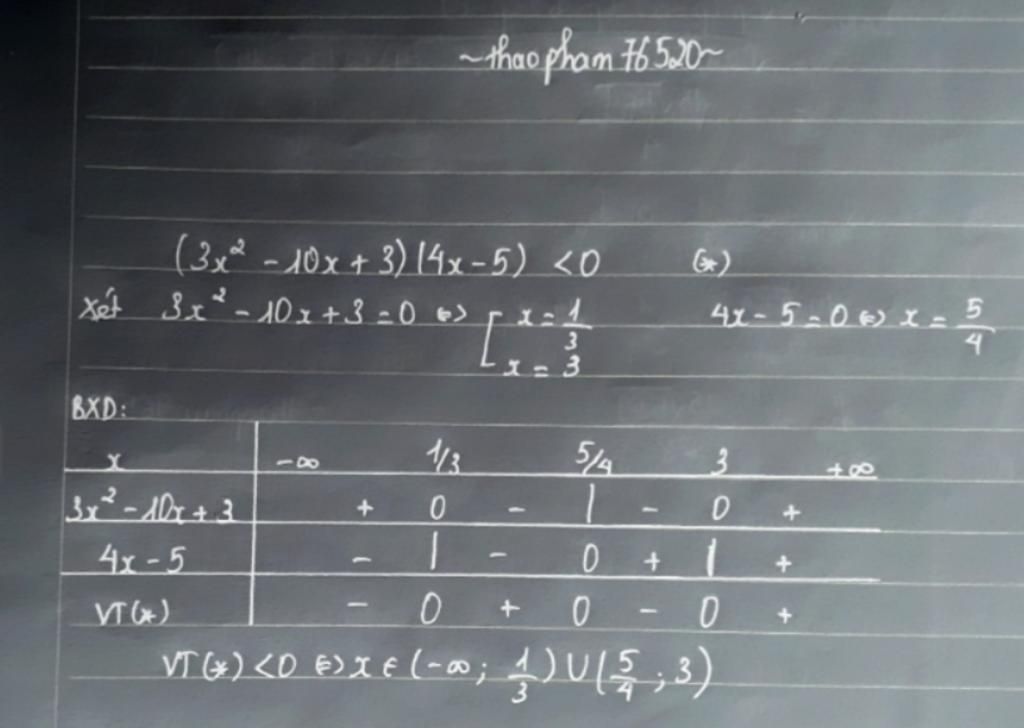 ~thaopham76520~
(3x² - 10x + 3)(4x - 5) < 0 (*)
Xét 3x² - 10x + 3 = 0 ⇔ [ x = 1/3 4x - 5 = 0 ⇔ x = 5/4
x = 3
BXD:
x -∞ 1/3 5/4 3 +∞
3x² - 10x + 3 + 0 - | - 0 +
4x - 5 - | - 0 + | +
VT(*) - 0 + 0 - 0 +
VT(*) < 0 ⇔ x ∈ (-∞; 1/3) ∪ (5/4; 3)